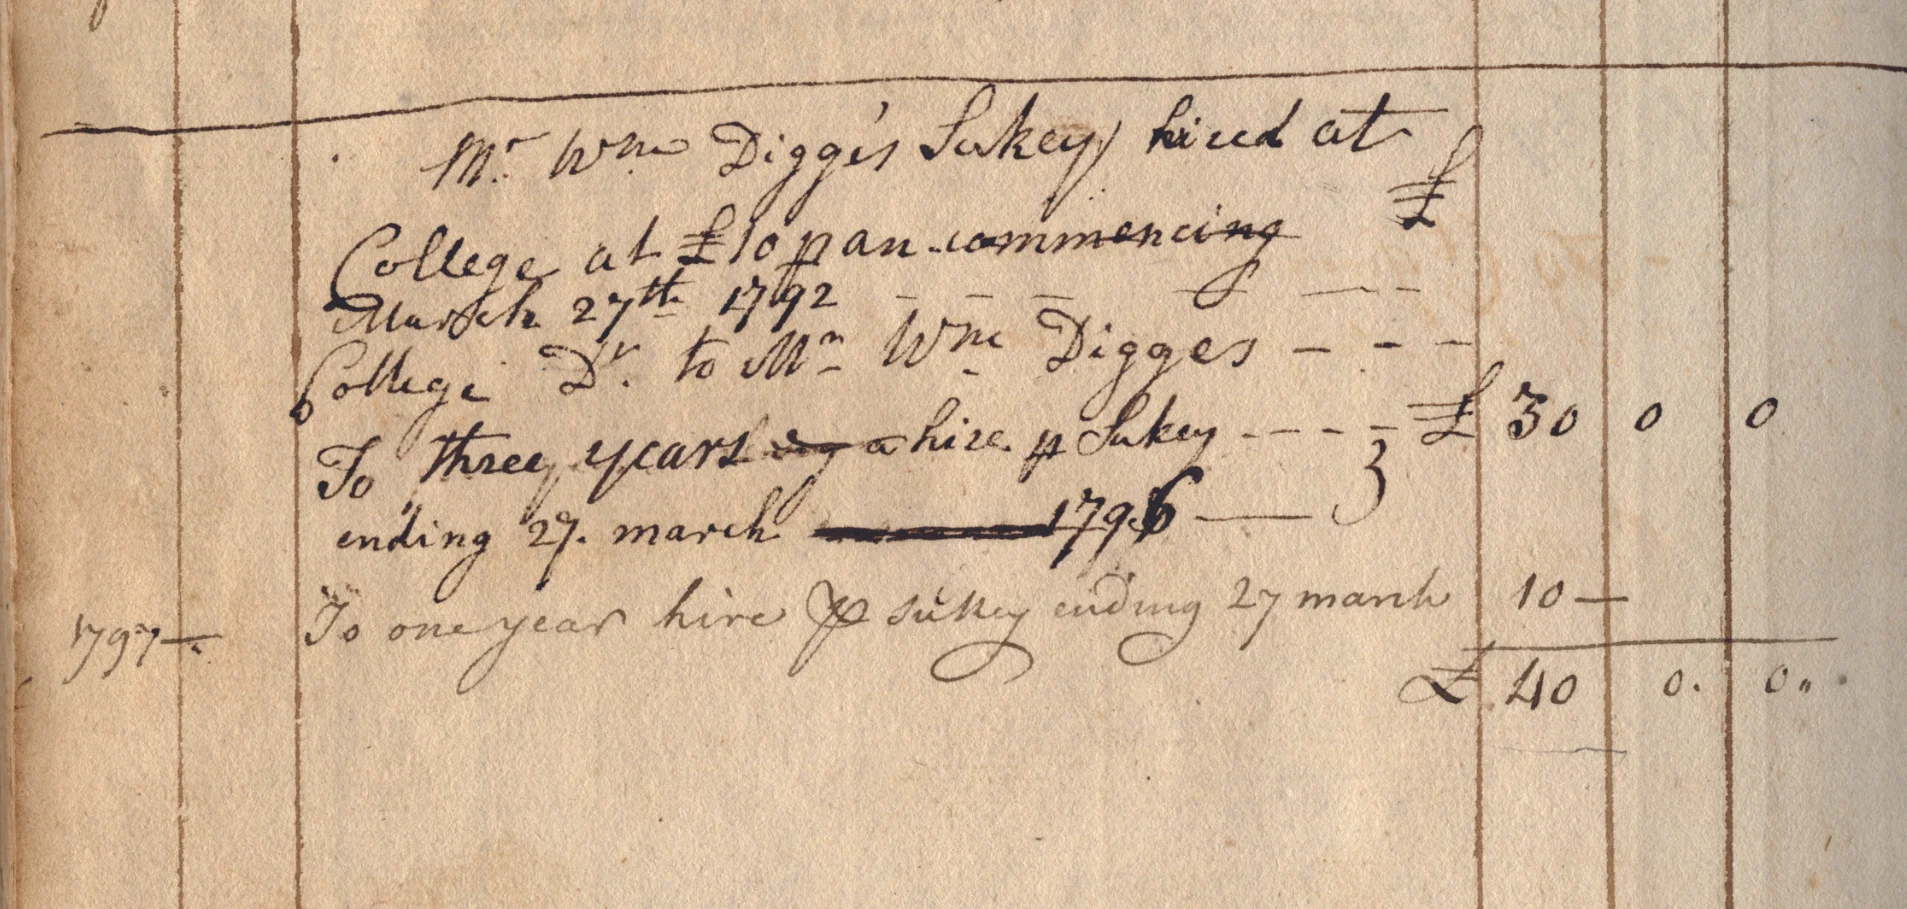 Mr. Wm Digge's Sukey hired at
College at £10 p an. commencing £
March 27th 1792 - - - - - -
College Dr. to Mr Wm Digges - - -
To three years hire p Sukey - - - - £ 30 0 0
ending 27. march 1796 —
1797 — To one year hire p sukey ending 27 march 10 —
£ 40 0. 0"